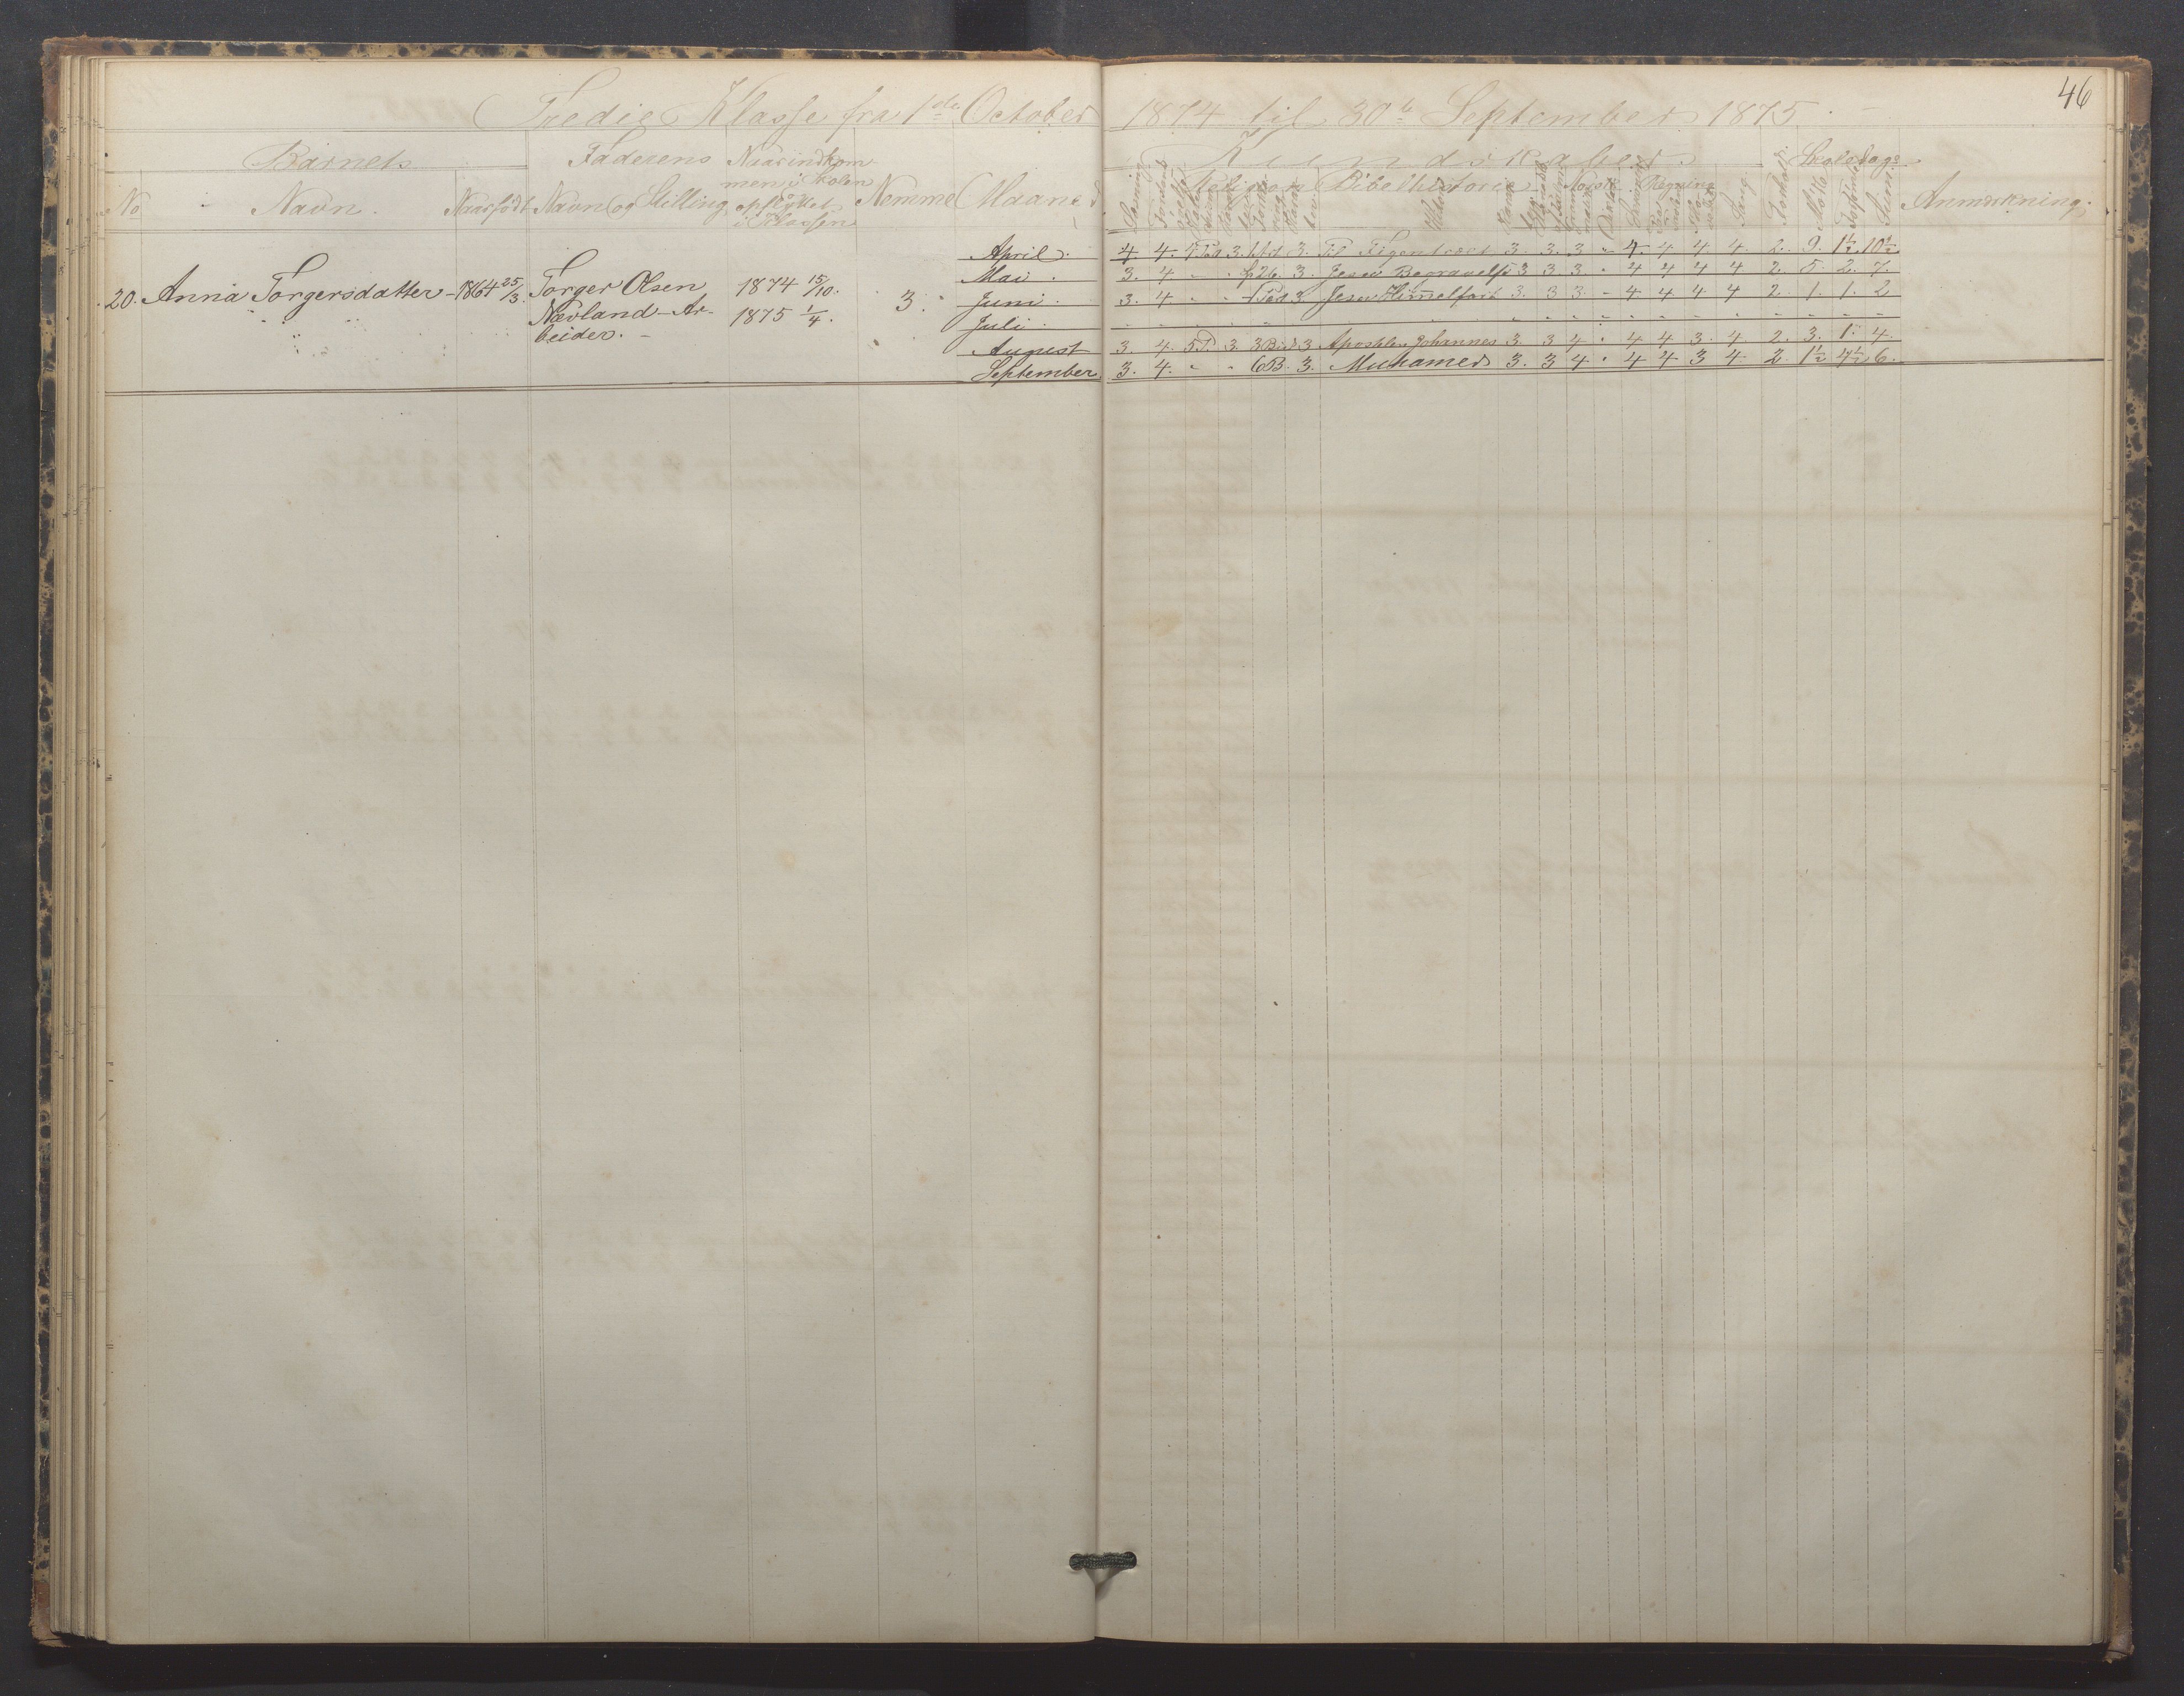 46
Tredie Klasse fra 1ste October 1874 til 30te September 1875.
Barnets Faderens Naar indkom- Kundskaber. Skoledage
men i Skolen
No Navn. Naar født Navn og Stilling opflyttet Nemme Maaned Religion Bibelhistorie Norsk Regning Sang. Forhold. Mødte Forsømte Sum. Anmærkning.
i Klassen
April. 4. 4. 3. 3. Til 3. 3. 3 " 4. 4 4. 4. 2. 9. 1½ 10½
Mai. 3. 4 " " 26. 3. Jesu Begravelse 3 3 3. " 4 4 4 4 2. 5. 2. 7.
20. Anna Torgersdatter 1864 25/3. Torger Olsen 1874 15/10. 3. Juni. 3. 4 " " 3. Jesu Himmelfart 3. 3 3. " 4 4. 4 4 2. 1. 1. 2
Nævland Ar- 1875 1/4. Juli. " " " "
beider. August 3. 4. 5P. 3. 3 3. Apostlen Johannes 3. 3 4 " 4 4 3. 4 2. 3. 1. 4.
September 3. 4. " " 6B. 3. Muhamed 3. 3 4 " 4 4 3 4 2. 1½ 4½ 6.